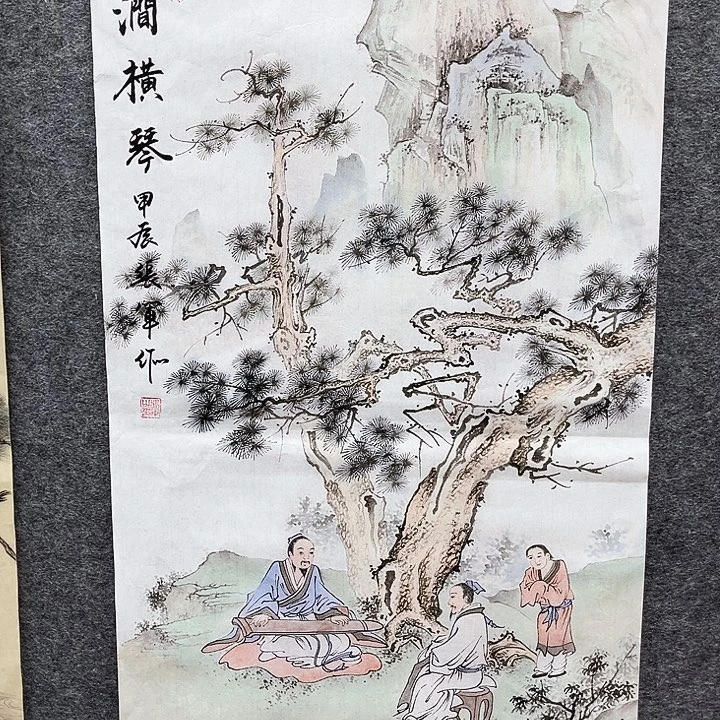 澗橫琴
甲辰張軍作